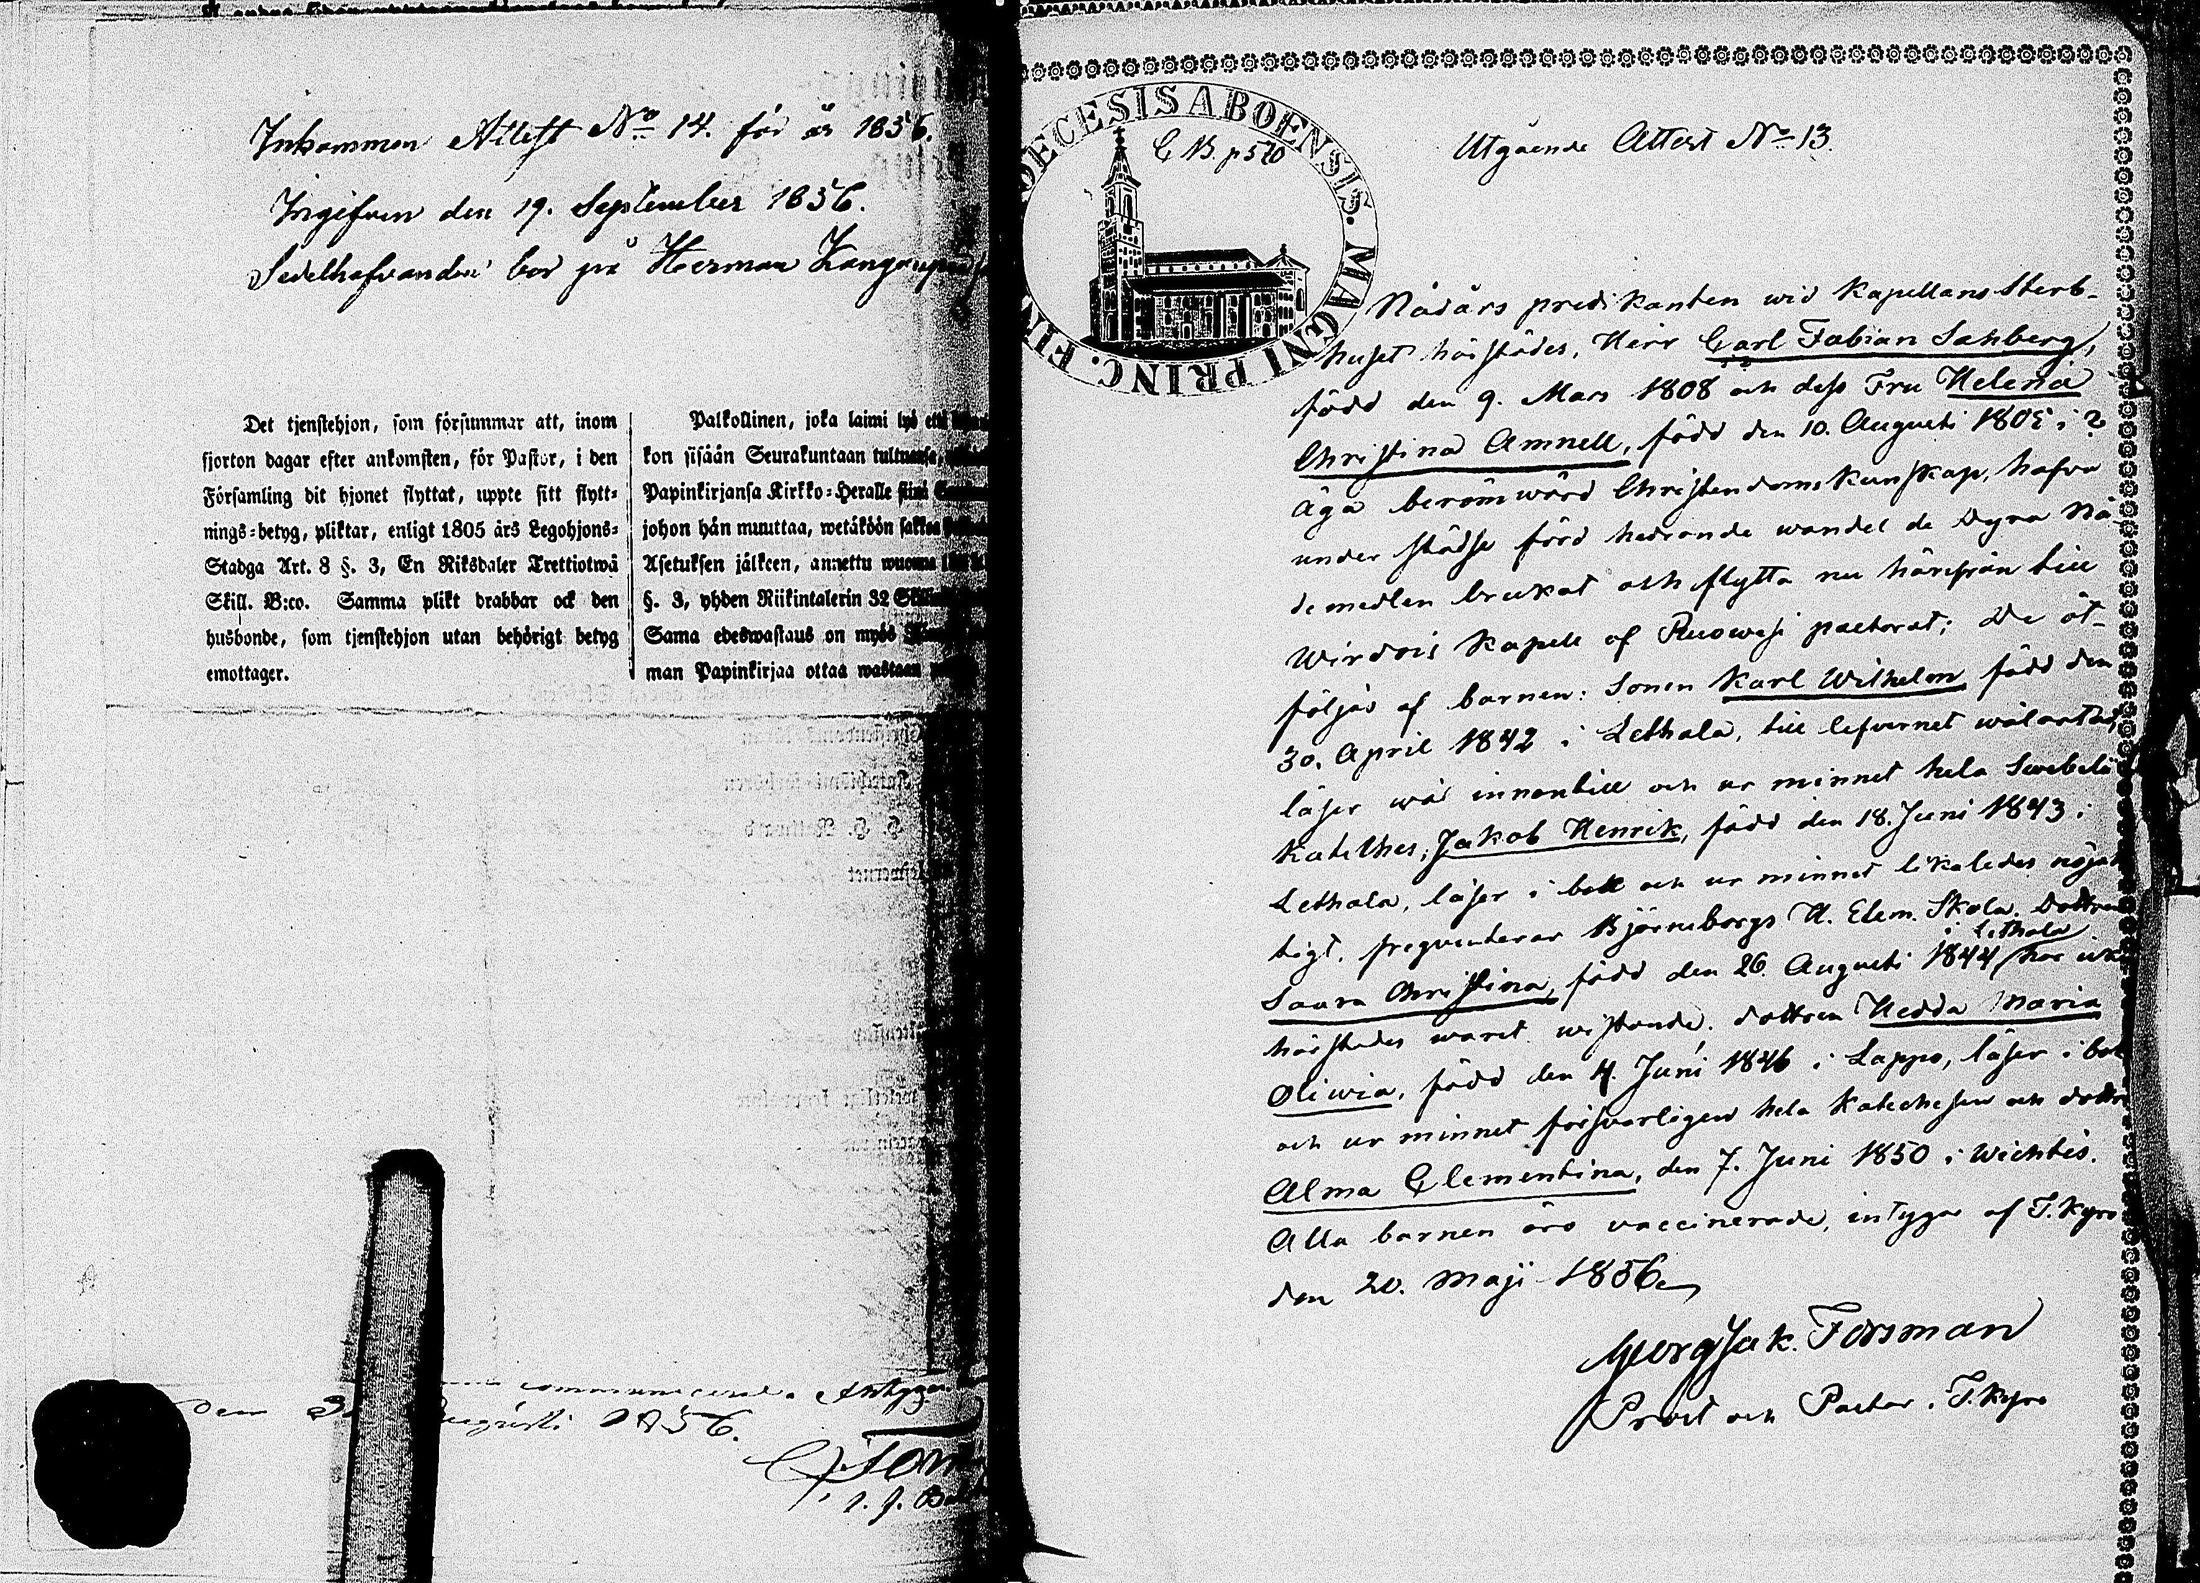 Inkommen Attest No 14. för år 1856.
Ingifven den 19. September 1856.
Sedelhafvanden bor på Herman
Det tjenstehjon, som försummar att, inom
fjorton dagar efter ankomsten, för Pastor, i den
Församling dit hjonet flyttat, uppte sitt flytt-
nings-betyg, pliktar, enligt 1805 års Legohjons-
Stadga Art. 8 §. 3, En Riksdaler Trettiotwå
Skill. B:co. Samma plikt drabbar ock den
husbonde, som tjenstehjon utan behörigt betyg
emottager.
Palkollinen, joka laimi lyö
kon sisään Seurakuntaan
Papinkirjansa Kirkko-Heralle
johon hän muuttaa, wetäköön
Asetuksen jälkeen, annettu wuonna
§. 3, yhden Riikintalerin 32
Sama edeswastaus on myös
man Papinkirjaa ottaa wastaan
den Augusti 1856.
DECESIS ABOENSIS. MAGNI PRINC. FIN
C B. p 570
Utgående Attest No 13.
Nådårs predikanten wid Kapellans Sterb-
huset härstädes, Herr Carl Fabian Sahberg,
född den 9. Mars 1808 och dess Fru Helena
Christina Amnell, född den 10. Augusti 1805 i ?
äga berömwärd Christendoms kunskap, hafva
under städse förd hedrande wandel de Dyra Nå-
demedlen brukat och flytta nu härifrån till
Wirdois Kapell af Ruowesi pastorat; De åt-
följas af barnen: Sonen Karl Wilhelm född den
30. April 1842 i Lethala, till lefvernet wälartad,
läser wäl innantill och ur minnet hela Swebelii
Kateches, Jakob Henrik, född den 18. Juni 1843 i
Lethala, läser i bok och ur minnet likaledes nöjak
tigt, freqventerar Björneborgs H. Elem. Skola. Dottren
Lethala
Saura Christina, född den 26. Augusti 1844 i har ick
härstädes warit wistande. dottren Hedda Maria
Oliwia, född den 4. Juni 1846 i Lappo, läser i bok
och ur minnet försvarligen hela Katechesen och dottr
Alma Clementina, den 7. Juni 1850 i Wichtis.
Alla barnen äro vaccinerade, intygar af T. Kyro
den 20. Maji 1856.
Georg Jak. Forsman
Prost och Pastor i T. Kyro